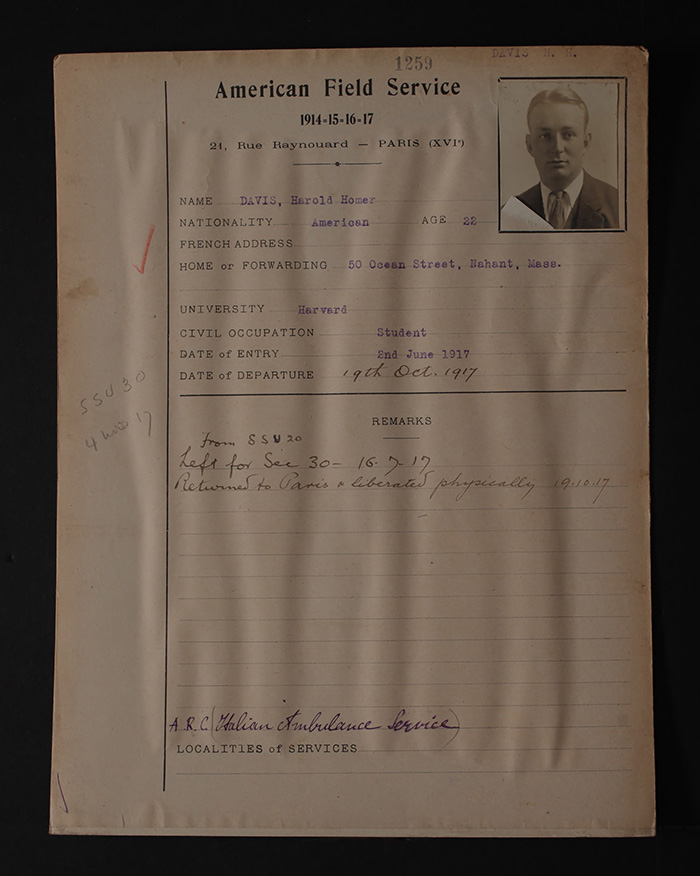 1259
DAVIS H. H.
American Field Service
1914-15-16-17
21, Rue Raynouard — PARIS (XVIe)
NAME DAVIS, Harold Homer
NATIONALITY American AGE 22
FRENCH ADDRESS
HOME or FORWARDING 50 Ocean Street, Nahant, Mass.
UNIVERSITY Harvard
CIVIL OCCUPATION Student
DATE of ENTRY 2nd June 1917
DATE of DEPARTURE 19th Oct. 1917
SSU 30
4 17
REMARKS
From SSU 20
Left for Sec 30 - 16.7.17
Returned to Paris & liberated physically 19.10.17
A.R.C. (Italian Ambulance Service)
LOCALITIES of SERVICES